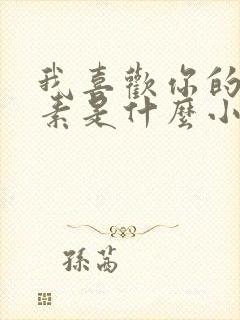 我喜歡你的
素是什麼小
孫茜